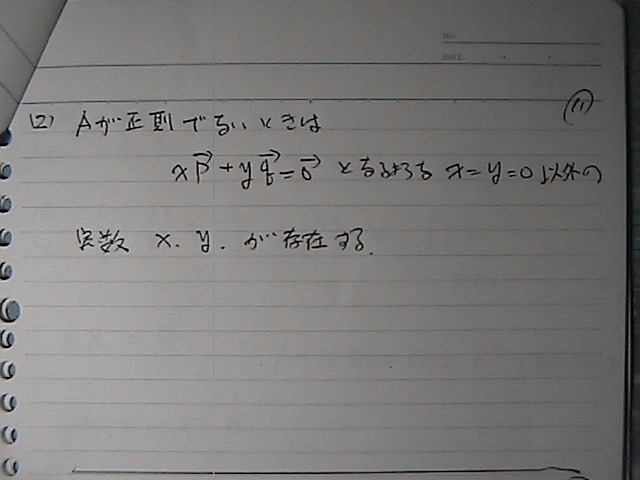 No.
DATE
(11)
(2) Aが正則でないときは
x p⃗ + y q⃗ = 0⃗ となるような x = y = 0 以外の
実数 x, y. が存在する.